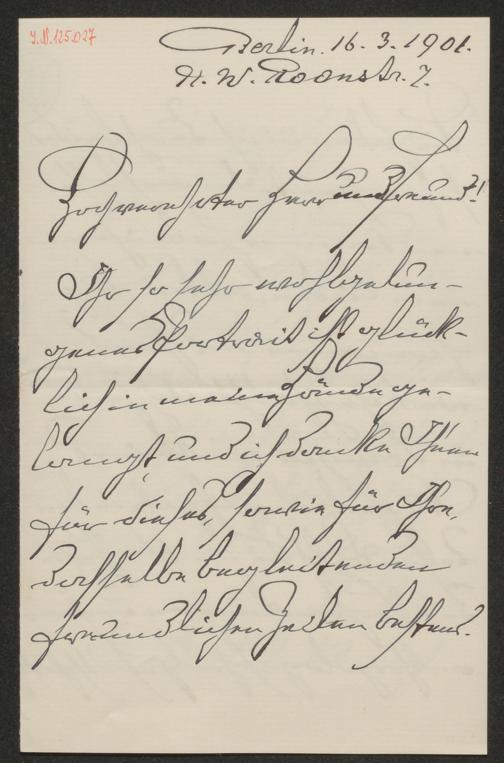 I.N. 125.027
Berlin. 16. 3. 1901.
N. W. Roonstr. 7.
Hochverehrter Herr und Freund!
Ihr so sehr wohlgelun-
genes Portrait ist glück-
lich in meine Hände ge-
langt, und ich danke Ihnen
für dieses, sowie für Ihre,
dasselbe begleitenden
freundlichen Zeilen bestens.